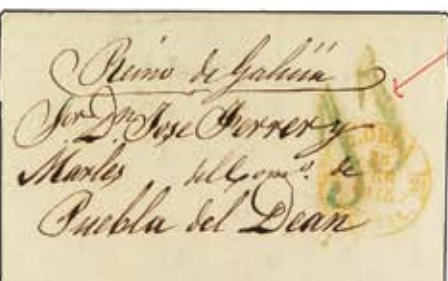 Reino de Galicia
Sor Dn Jose Ferrer y
Marles del Comº. de
Puebla del Dean